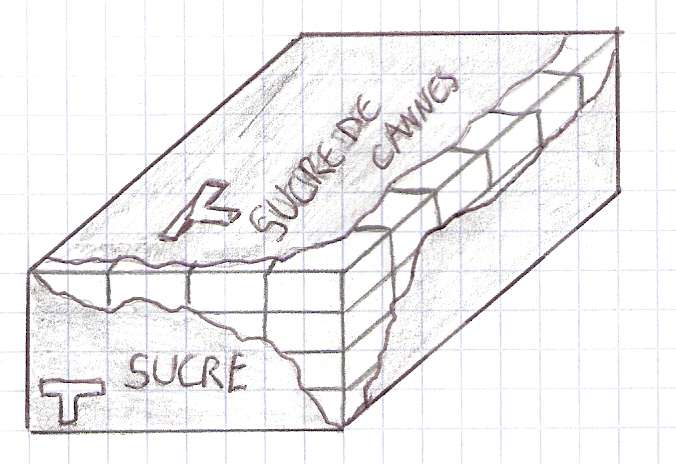 SUCRE DE
CANNES
T
SUCRE
T